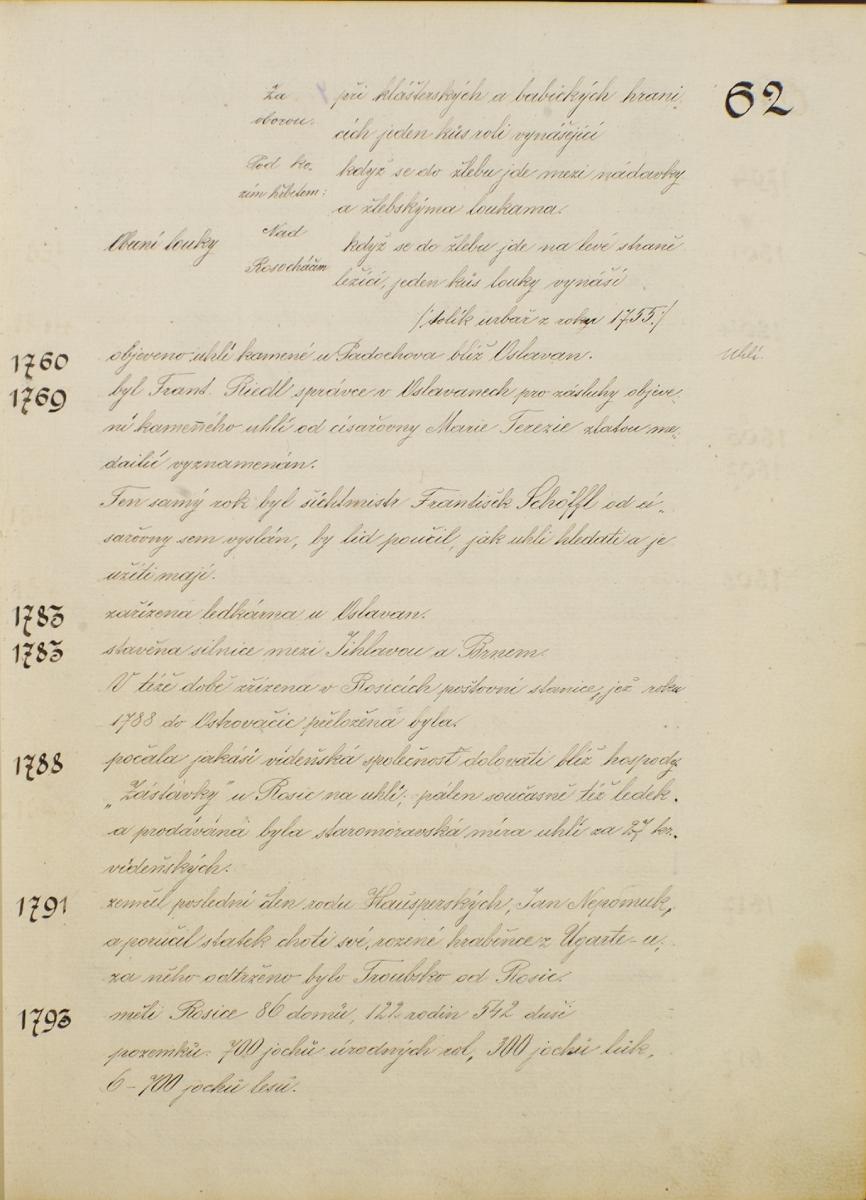 62
Za oborou: při klášterských a babických hrani-
cích jeden kus roli vynášející
Pod ko-
zím hřbetem: když se do žlebu jde mezi nádavky
a žlebskýma loukama.
Obecní louky Nad
Rosocháčem když se do žlebu jde na levé straně
ležící, jeden kus louky vynáší
/:tolik urbař z roku 1755:/
1760 objeveno uhlí kamené u Padochova blíž Oslavan. Uhlí.
1769 byl Frant. Riedl správce v Oslavanech pro zásluhy objeve-
ní kameného uhlí od císařovny Marie Terezie zlatou me-
dailií vyznamenán.
Ten samý rok byl šichtmistr František Schöffl od cí-
sařovny sem vyslán, by lid poučil, jak uhlí hledati a je
užiti mají.
1783 zařízena ledkárna u Oslavan.
1783 stavěna silnice mezi Jihlavou a Brnem.
V téže době zřízena v Rosicích poštovní stanice, jež roku
1788 do Ostrovačic přeložená byla.
1788 počala jakási vídeňská společnost dolovati blíž hospody
„Zástávky" u Rosic na uhlí; pálen současně též ledek.
a prodáváná byla staromoravská míra uhlí za 27 kr.
vídeňských.
1791 zemřel poslední člen rodu Hausperských, Jan Nepomuk,
a poručil statek choti své, rozené hraběnce z Ugarte-u,
za něho odtrženo bylo Troubsko od Rosic.
1793 měli Rosice 86 domů, 122 rodin 542 duší
pozemků: 700 jochů úrodných rol, 300 jochů luk,
6–700 jochů lesů.